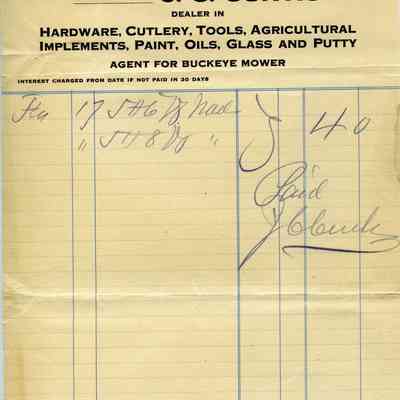 DEALER IN
HARDWARE, CUTLERY, TOOLS, AGRICULTURAL
IMPLEMENTS, PAINT, OILS, GLASS AND PUTTY
AGENT FOR BUCKEYE MOWER
INTEREST CHARGED FROM DATE IF NOT PAID IN 30 DAYS
17 5 # 6 40
" 5 # 8 "
Paid